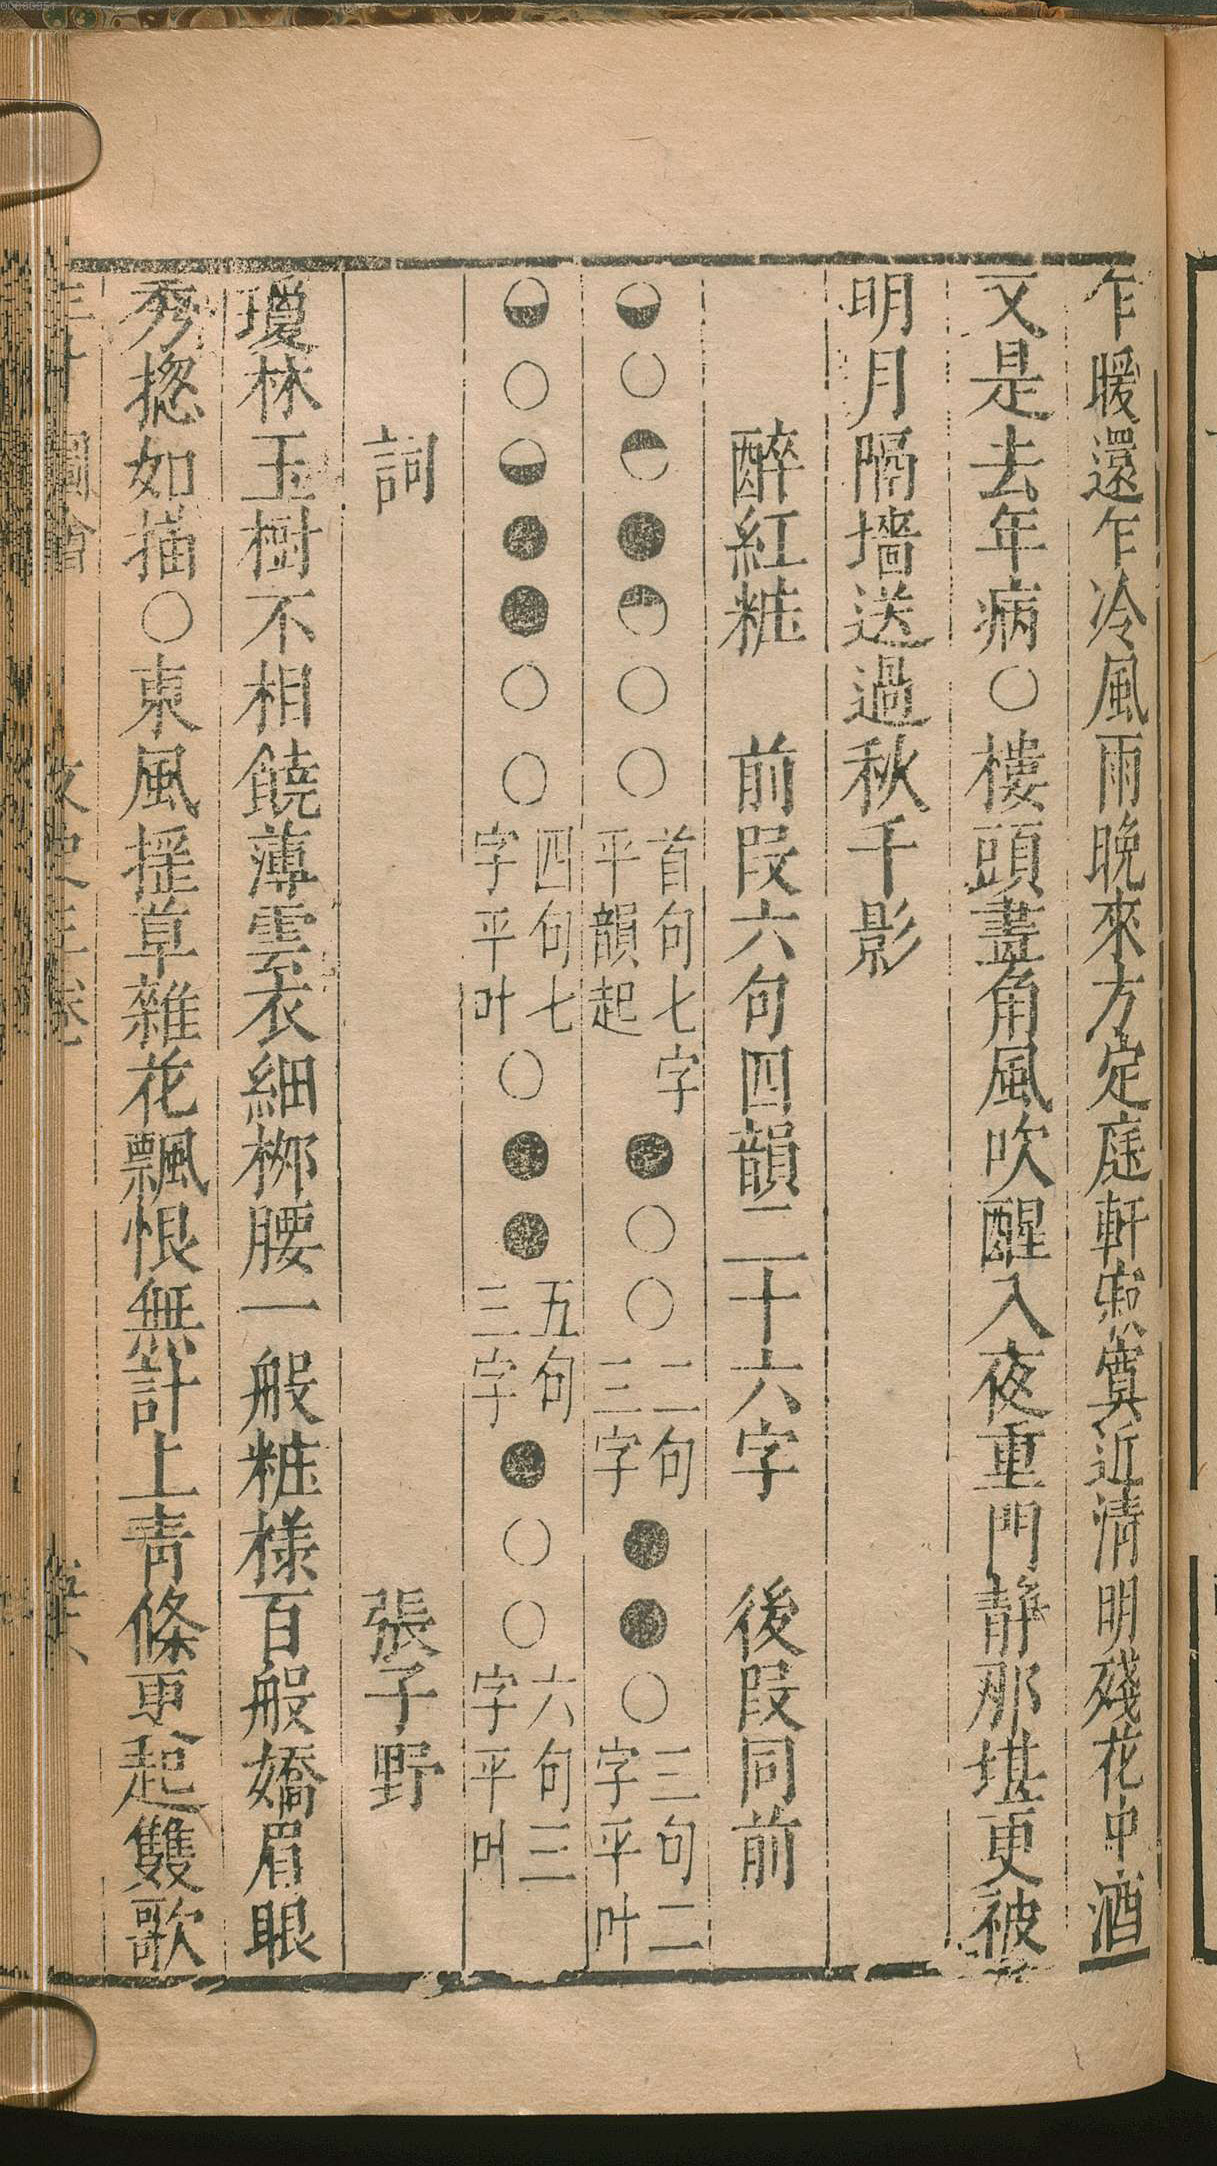 乍暖還乍冷風雨晚來方定庭軒寂寞近清明殘花中酒
又是去年病○樓頭畫角風吹醒入夜重門靜那堪更被
明月隔墻送過秋千影
醉紅粧 前段六句四韻二十六字 後段同前
◒○◓●◓○○首句七字平韻起●○○二句三字●●○三句二字平叶
◒○◒●●○○四句七字平叶○●●五句三字●○○六句三字平叫
詞 張子野
瓊林玉樹不相饒薄雲衣細桞腰一般粧様百般嬌眉眼
秀揔如描○東風揺草雜花飄恨無計上青條更起雙歌